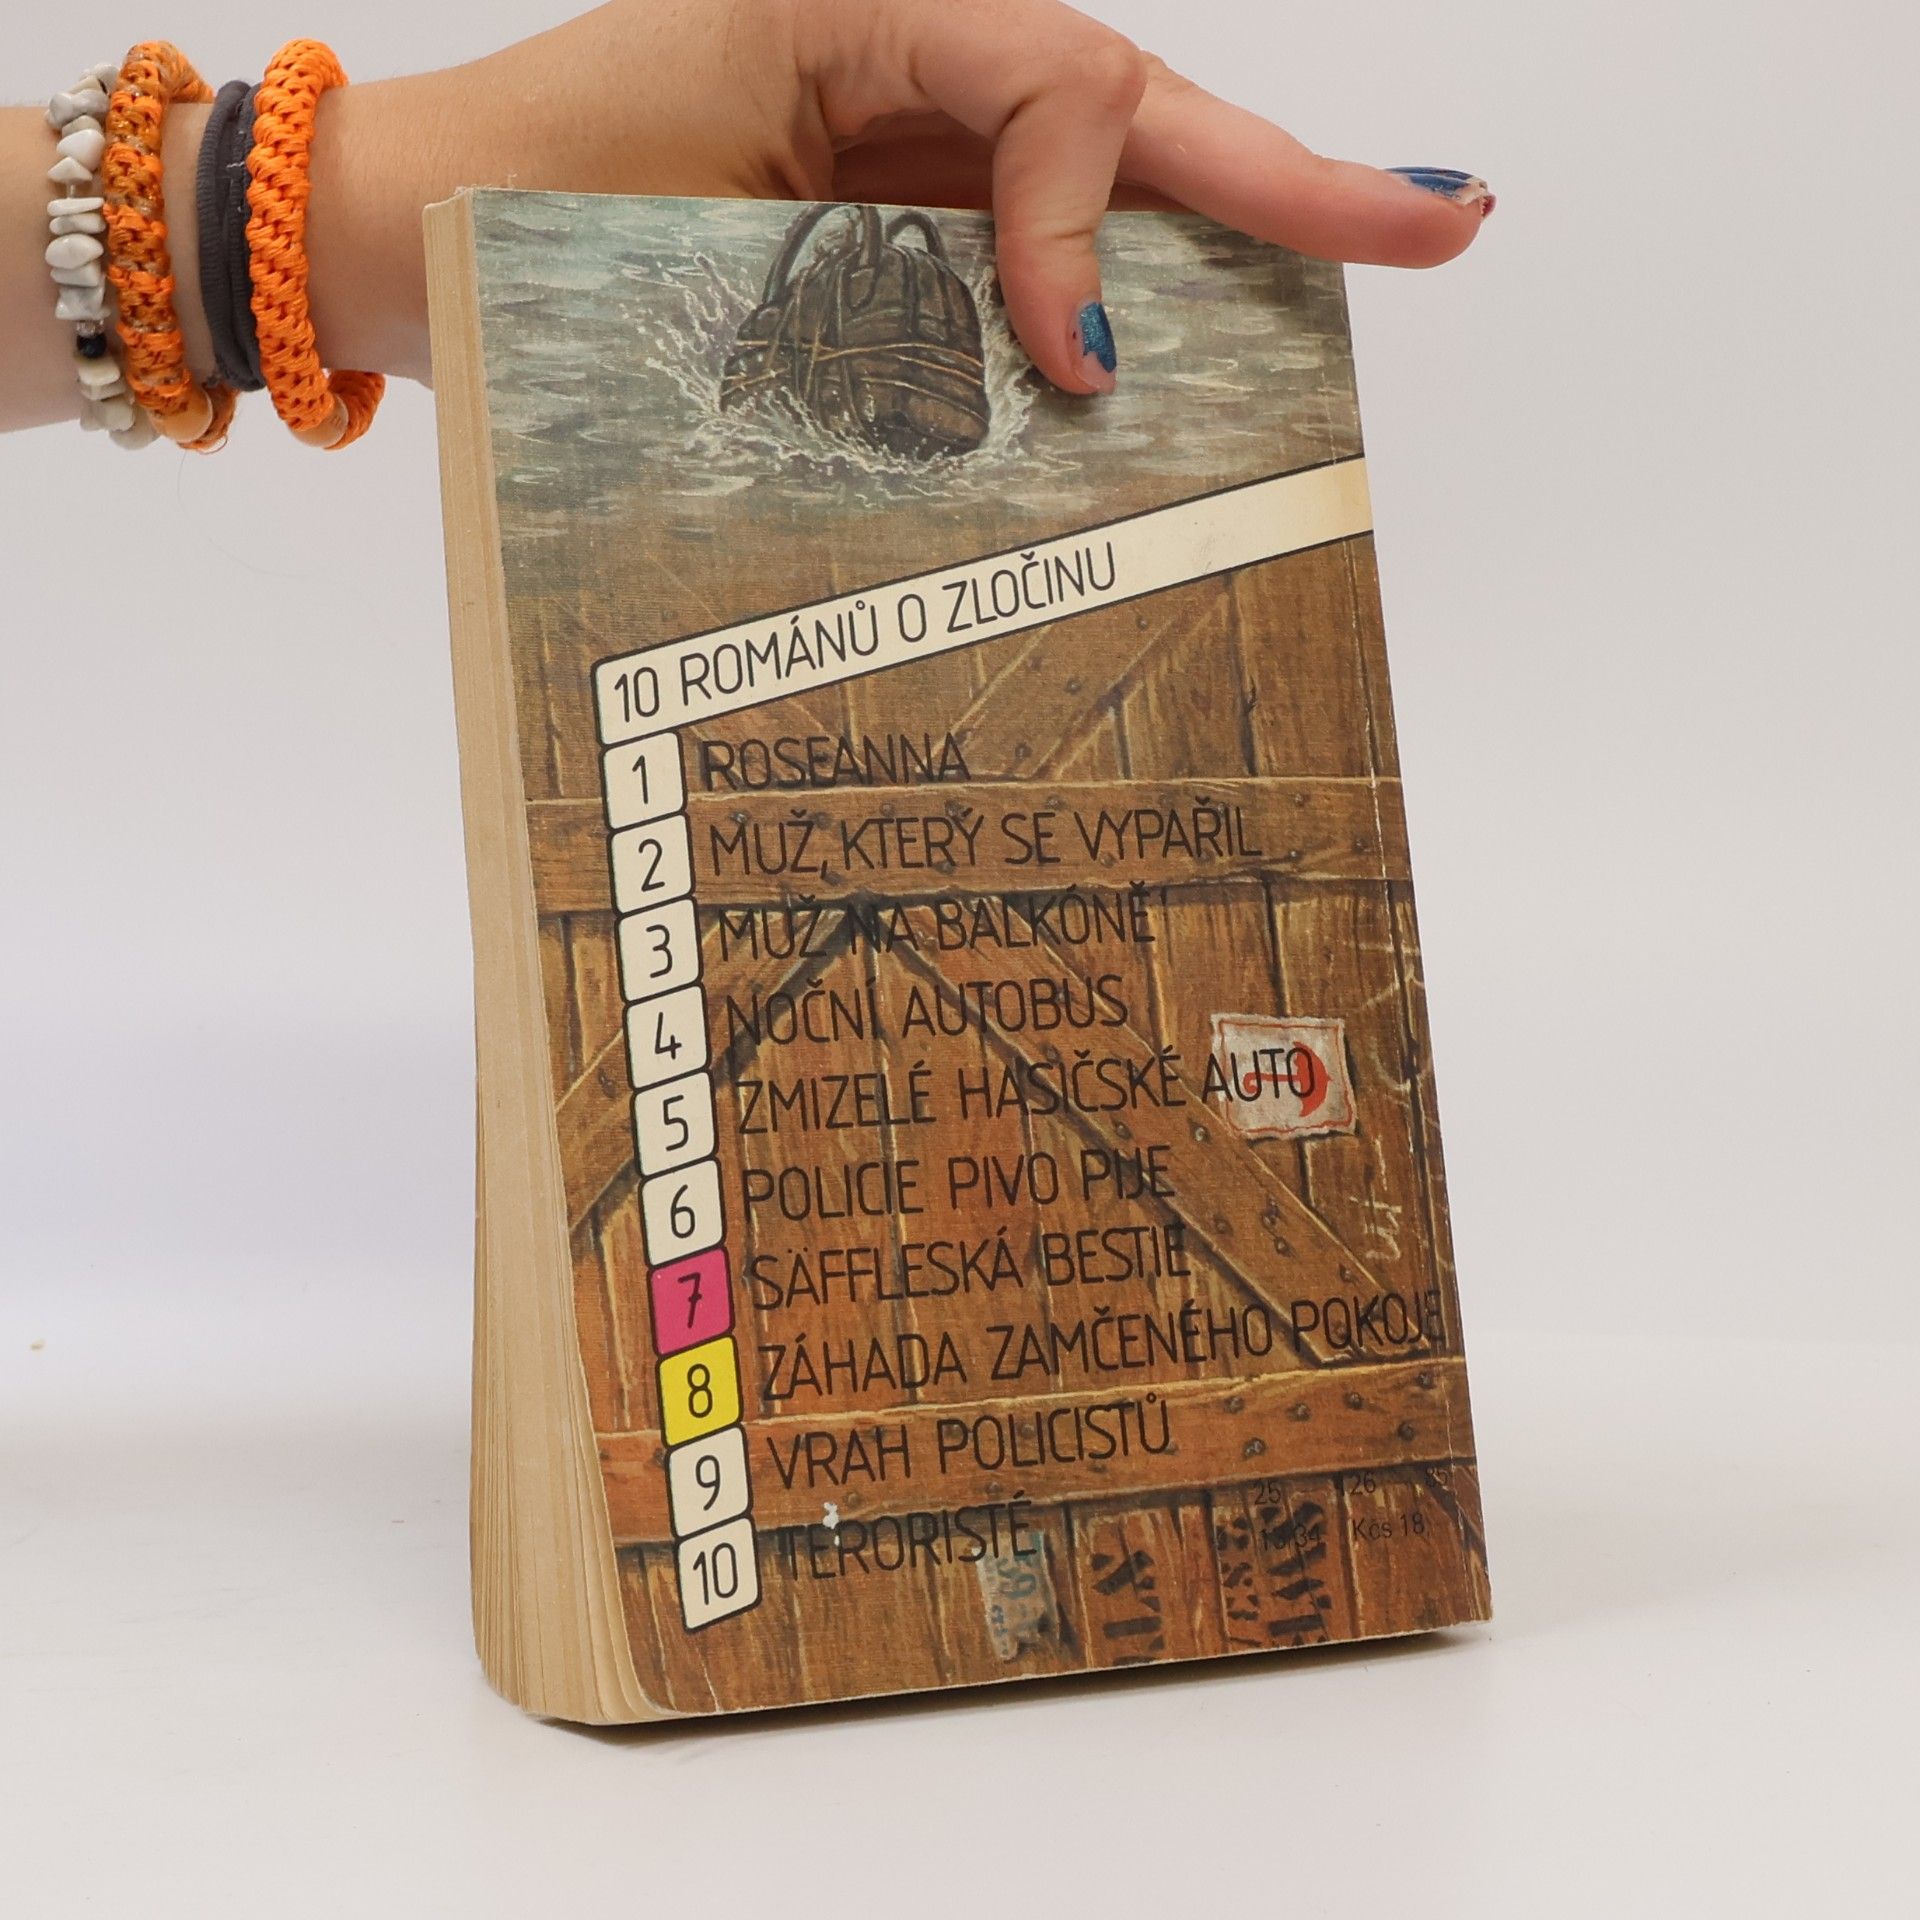 10 ROMÁNŮ O ZLOČINU
1 ROSEANNA
2 MUŽ, KTERÝ SE VYPAŘIL
3 MUŽ NA BALKÓNĚ
4 NOČNÍ AUTOBUS
5 ZMIZELÉ HASIČSKÉ AUTO
6 POLICIE PIVO PIJE
7 SÄFFLESKÁ BESTIE
8 ZÁHADA ZAMČENÉHO POKOJE
9 VRAH POLICISTŮ
10 TERORISTÉ
25 126 85
13/34 Kčs 18,